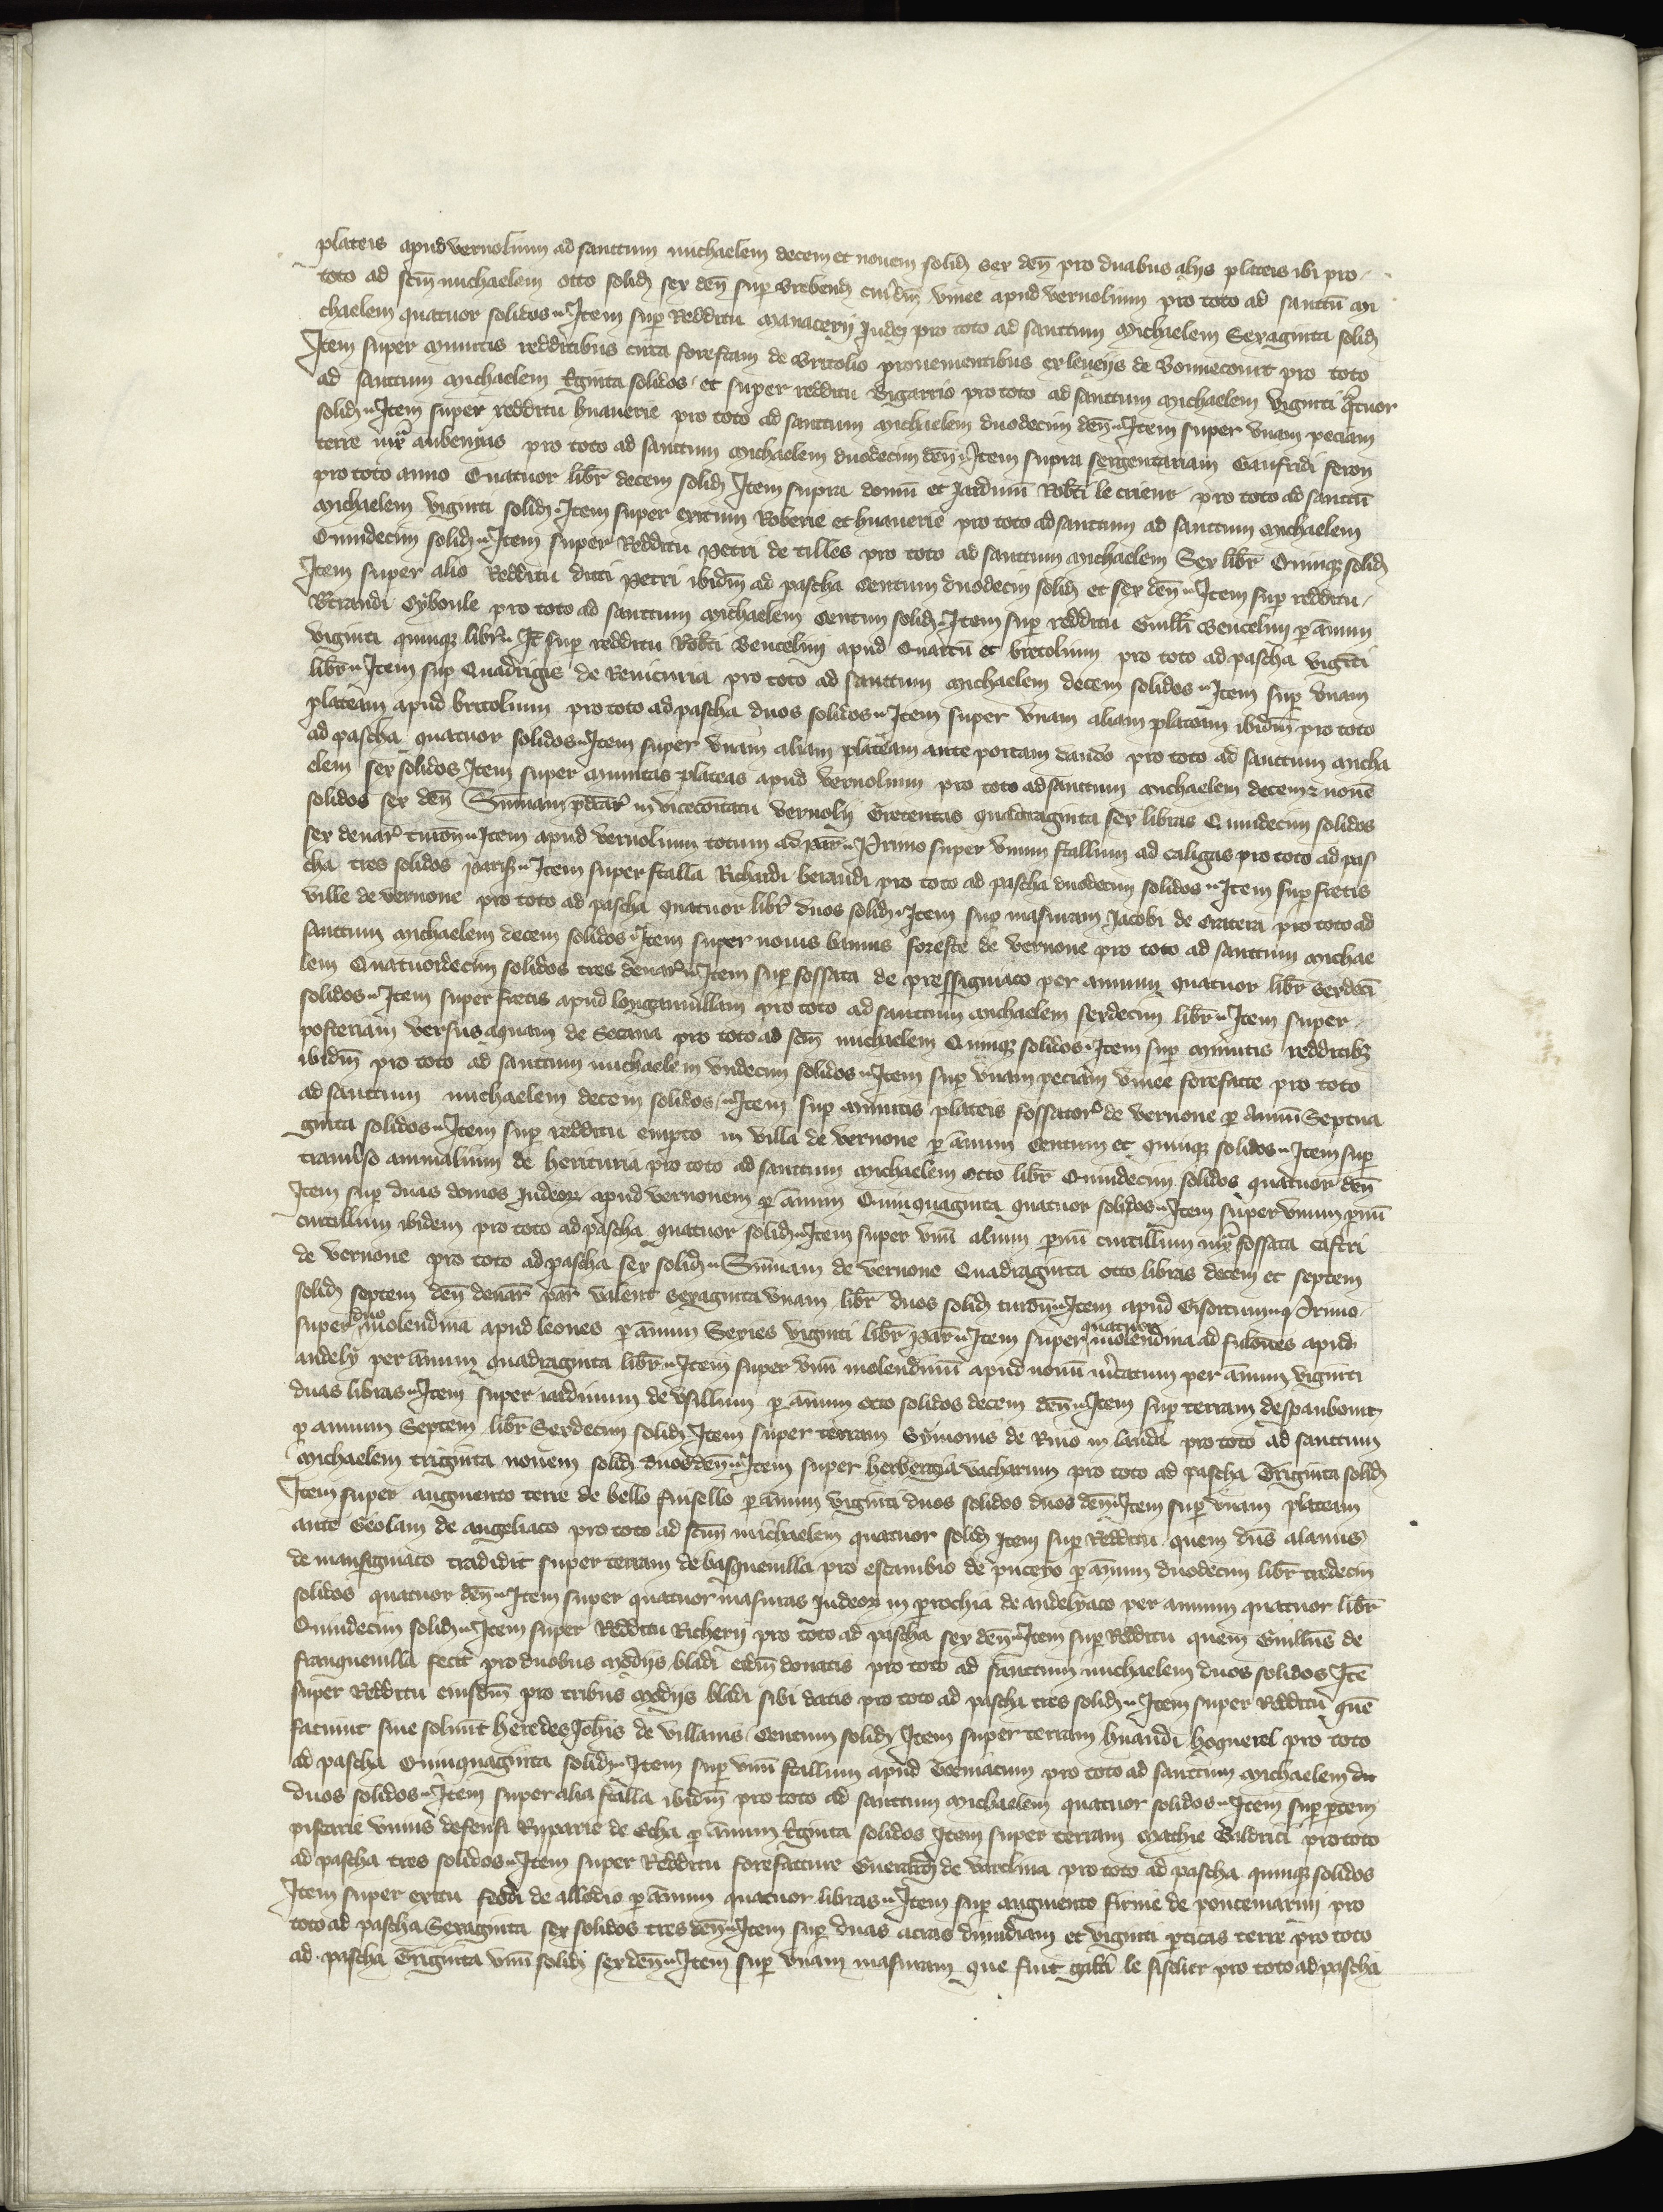 plateis apud vernolium ad sanctum michaelem decem et novem solid sex deñ pro duabus alijs plateis ibi pro
toto ad scm̃ michaelem octo solid sex deñ sup cuiusdm̃ vinee apud vernolium pro toto ad sanctũ mi
chaelem quatuor solidos Item sup Redditu manacerij Judei pro toto ad sanctum Michaelem Sexaginta solid
Item super minutis redditibus circa forestam de britolio provenientibus ex de pro toto
ad sanctum michaelem xxginta solidos et super redditu bigarrio pro toto ad sanctum Michaelem viginti qᵃtuor
solid Item super redditu huauerie pro toto ad sanctum michaelem duodecim deñ Item super vnam peciam
terre iuxᵃ aubenyas pro toto ad sanctum Michaelem duodecim deñ Item supra sergentariam Gaufridi feron
pro toto anno Quatuor libr̃ decem solid Item supra domũ et jardinũ Robti le crieur pro toto ad sanctũ
Michaelem viginti solid Item super exitum Roberie et huauerie pro toto ad sanctum ad sanctum Michaelem
Quindecim solid Item super Redditu petri de tilles pro toto ad sanctum Michaelem Sex libr̃ Quinqz solid
Item super alio Redditu dicti petri ibidm̃ ad pascha Centum duodecim solid et sex deñ Item sup redditu
Giboule pro toto ad sanctum Michaelem Centum solid Item sup redditu Guilłi Vencelin p annum
viginti quinqz libr̃ It sup redditu Robti Vencelini apud Quartũ et bretolium pro toto ad pascha viginti
libr̃ Item sup Quadrigis de pro toto ad sanctum Michaelem decem solidos Item sup vnam
plateam apud britolium pro toto ad pascha duos solidos Item super vnam aliam plateam ibidm̃ pro toto
ad pascha quatuor solidos Item super vnam aliam plateam ante portam dando pro toto ad sanctum Micha
elem sex solidos Item super minutas plateas apud vernolium pro toto ad sanctum Michaelem decem z novẽ
solidos sex deñ Sum̃am pdcãr in vicecomitatu vernolij Trecentas quadraginta sex libras Quindecim solidos
sex denar̃ turoñ Item apud vernolium totum ad par̃ Primo super vnum stallum ad caligas pro toto ad pas
cha tres solidos paris Item super stalla Richardi beraudi pro toto ad pascha duodecim solidos Item sup fretis
ville de vernone pro toto ad pascha quatuor libr̃ duos solid Item sup masuram Jacobi de Cratera pro toto ad
sanctum Michaelem decem solidos Item super novis bannis foreste de vernone pro toto ad sanctum Michae
lem Quatuordecim solidos tres denar̃ Item sup fossata de pressigniaco per annum quatuor libr̃ sexdecĩ
solidos Item super fretis apud longamvillam pro toto ad sanctum Michaelem sexdecim libr̃ Item super
posteriam versus aquam de Secana pro toto ad scm̃ michaelem Quinqz solidos Item sup minutis redditibz
ibidm̃ pro toto ad sanctum michaelem vndecim solidos Item sup vnam peciam vinee forefacte pro toto
ad sanctum michaelem decem solidos Item sup minutis plateis fossator de vernone p annũ Septua
ginta solidos Item sup redditu empto in villa de vernone p annum Centum et quinqz solidos Item sup
animalium de herituria pro toto ad sanctum Michaelem Octo libr̃ Quindecim solidos quatuor deñ
Item sup duas domos Judeor apud vernonem p annum Quinquaginta quatuor solidos Item super vnum pvũ
curtillum ibidem pro toto ad pascha quatuor solid Item super vnũ alium pvũ curtillum iuxᵃ fossata castri
de vernone pro toto ad pascha sex solid Sum̃am de vernone Quadraginta octo libras decem et septem
solid septem deñ denar̃ par̃ valent sexaginta vnam libr̃ duos solid turoñ Item apud Gisortium Primo
super duo molendina apud leones p annum Series viginti libr̃ par̃ Item super quatuor molendina ad fulones apud
andely per annum quadraginta libr̃ Item super vnũ molendinũ apud novũ mcatum per annum viginti
duas libras Item super iardinum de p annum octo solidos decem deñ Item sup terram
p annum Septem libr̃ Sexdecim solid Item super terram Symonis de Rivo in landa pro toto ad sanctum
Michaelem triginta novem solid duos deñ Item super herbergia vacharum pro toto ad pascha Triginta solid
Item super augmento terre de bello p annum viginti duos solidos duos deñ Item sup vnam plateam
ante Geolam de angeliaco pro toto ad scm̃ michaelem quatuor solid Item sup Redditu quem dns̃ alanus
de tradidit super terram de basquevilla pro escambio de p annum duodecim libr̃ tredecim
solidos quatuor deñ Item super quatuor masuras Judeor in prochia de andelyaco per annum quatuor libr̃
Quindecim solid Item super Redditu Richerij pro toto ad pascha sex deñ Item sup Redditu quem Guillms̃ de
franquevilla fecit pro duobus modijs bladi eidm̃ donatis pro toto ad sanctum michaelem duos solidos Itẽ
super Redditu eiusdm̃ pro tribus modijs bladi sibi datis pro toto ad pascha tres solid Item super Redditu quẽ
faciunt sive solvunt heredes Joh̃is de villanis Centum solid Item super terram huardi hoquerel pro toto
ad pascha Quinquaginta solid Item sup vnũ stallum apud pro toto ad sanctum Michaelem du
duos solidos Item super alia stalla ibidm̃ pro toto ad sanctum Michaelem quatuor solidos Item sup ptem
piscarie vnius defensi Ryparie de Etha p annum xxginta solidos Item super terram Mathie Baldrici pro toto
ad pascha tres solidos Item super Redditu forefacture de pro toto ad pascha quinqz solidos
Item super exitu feodi de allodio p annum quatuor libras Item sup augmento firme de pro
toto ad pascha Sexaginta sex solidos tres deñ Item sup duas acras dimidiam et viginti pticas terre pro toto
ad pascha Triginta vnũ solid sex deñ Item sup vnam masuram que fuit le pro toto ad pascha